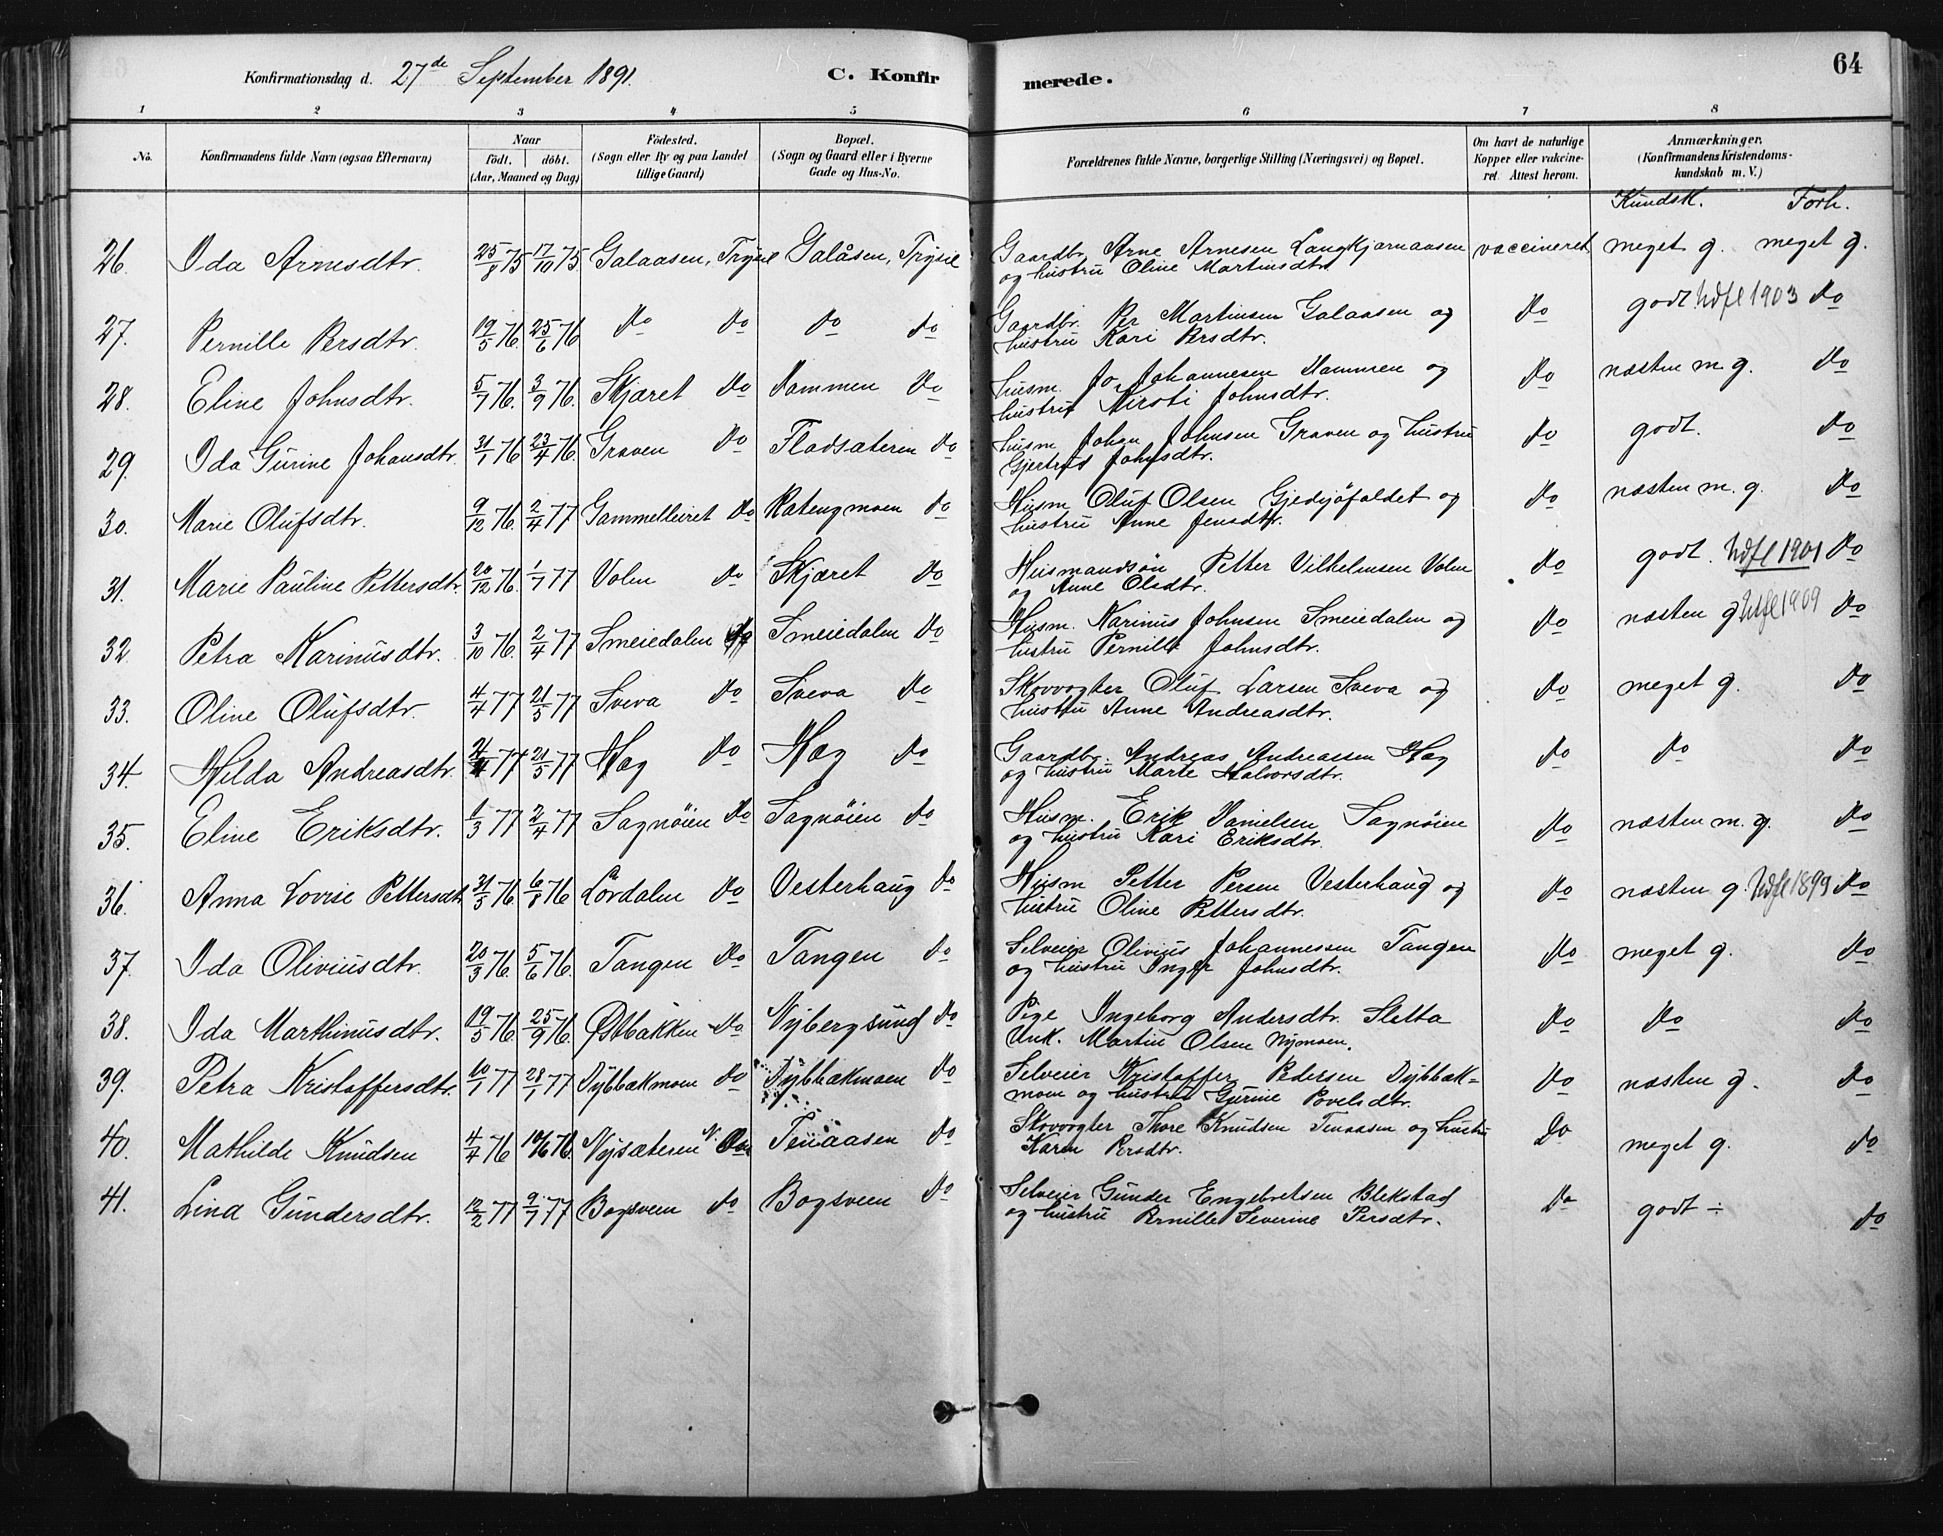 Konfirmationsdag d. 27de September 1891. C. Konfirmerede. 64
1 2 3 4 5 6 7 8
No. Konfirmandens fulde Navn (ogsaa Efternavn) Naar födt. döbt. (Aar, Maaned og Dag) Födested. (Sogn eller By og paa Landet tillige Gaard) Bopæl. (Sogn og Gaard eller i Byerne Gade og Hus-No. Forældrenes fulde Navne, borgerlige Stilling (Næringsvei) og Bopæl. Om havt de naturlige Kopper eller vakcineret. Attest herom. Anmærkninger. (Konfirmandens Kristendomskundskab m. V.)
Kundsk. Forh.
26. Ida Arnesdtr. 25/8 75 17/10 75 Galaasen, Trysil Galåsen, Trysil Gaardbr. Arne Arnesen Langkjærnaasen vaccineret meget g. meget g.
og hustru Oline Martinsdtr.
27. Pernille Persdtr. 19/5 76. 25/6 76 do do do do Gaardbr. Per Martinsen Galaasen og do godt Udfl 1903 do
hustru Kari Persdtr.
28. Eline Johnsdtr. 5/7 76. 3/9 76. Skjæret do Dammen do Husm. Jo Johannesen Dammen og do næsten m. g. do
hustru Kirsti Johnsdtr.
29. Ida Gurine Johansdtr. 31/1 76 23/4 76. Graven do Fladsæteren do Husm. Johan Johnsen Graven og hustru do godt. do
Gjertrud Johnsdtr.
30. Marie Olufsdtr. 9/12 76. 2/4 77 Gammelleiret do Ratengmoen do Husm. Oluf Olsen Gjedsjøfaldet og do næsten m. g. do
hustru Anne Jensdtr.
31. Marie Pauline Pettersdtr. 20/12 76. 1/7 77 Volen do Skjæret do Husmandsøn Petter Vilhelmsen Volen do godt. Udfl 1901 do
og Anne Olsdtr.
32. Petra Karinusdtr. 3/10 76. 2/4 77 Smeiedalen do Smeiedalen do Husm. Karinus Johnsen Smeiedalen og do næsten g. Udfl 1909 do
hustru Pernille Johnsdtr.
33. Oline Olufsdtr. 4/4 77 21/5 77 Sveva do Sveva do Skovvogter Oluf Larsen Sveva og do meget g. do
hustru Anne Andreasdtr.
34. Hilda Andreasdtr. 77 21/5 77 Hag do Hag do Gaardbr. Andreas Andreasen Hag do do do
og hustru Marte Halvorsdtr.
35. Eline Eriksdtr. 1/3 77 2/4 77 Sagnøien do Sagnøien do Husm. Erik Danielsen Sagnøien do næsten m. g. do
og hustru Kari Eriksdtr.
36. Anna Lovise Pettersdtr 31/5 76. 6/8 76 Lørdalen do Vesterhaug do Husm Petter Persen Vesterhaug og do næsten g. Udfl 1899 do
hustru Oline Pettersdtr.
37. Ida Oliviusdtr. 20/3 76. 5/6 76. Tangen do Tangen do Selveier Olivius Johannessen Tangen do meget g. do
og hustru Inger Johnsdtr.
38. Ida Marthinusdtr. 19/5 76. 25/9 76. Østbakken do Nybergsund do Pige Ingeborg Andersdtr. Sletta do do do
Unk. Martin Olsen Nymoen.
39. Petra Kristoffersdtr. 10/1 77 28/1 77 Dybbækmoen do Dybbækmoen do Selveier Kristoffer Pedersen Dybbæk= do næsten g. do
moen og hustru Gurine Povelsdtr.
40. Mathilde Knudsen 4/4 76 76. Nysæteren Tenaasen do Skovvogter Thore Knudsen Tenaasen og hustru do meget g. do
Karen Persdtr.
41. Lina Gundersdtr. 12/2 77 9/7 77 Bogsveen do Bogsveen do Selveier Gunder Engebretsen Blekstad do godt ÷ do
og hustru Pernille Severine Persdtr.